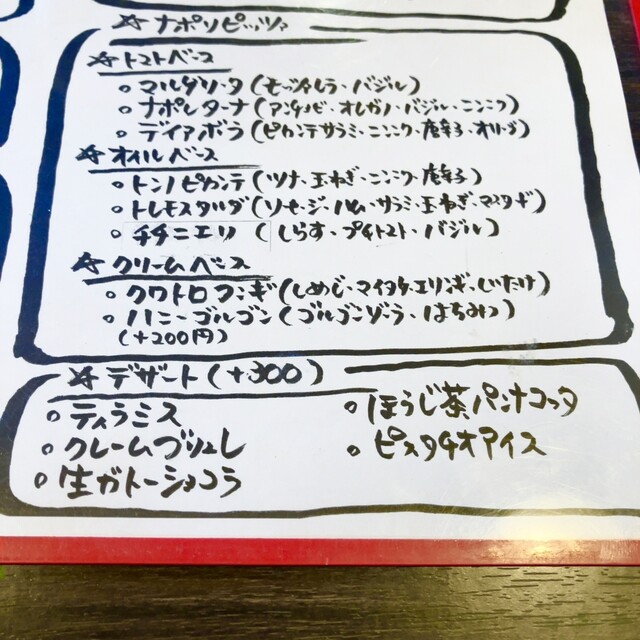 ☆ ナポリピッツァ
☆ トマトベース
○ マルゲリータ(モッツァレラ・バジル)
○ ナポレターナ(アンチョビ・オレガノ・バジル・ニンニク)
○ ディアボラ(ピカンテサラミ・ニンニク・唐辛子・オリーブ)
☆ オイルベース
○ トンノピカンテ(ツナ・玉ねぎ・ニンニク・唐辛子)
○ トレモスタルダ(ソーセージ・ハム・サラミ・玉ねぎ・マスタード)
○ チチニエリ(しらす・プチトマト・バジル)
☆ クリームベース
○ クワトロフンギ(しめじ・マイタケ・エリンギ・しいたけ)
○ ハニーゴルゴン(ゴルゴンゾーラ・はちみつ)
(+200円)
☆ デザート(+300)
○ ティラミス ○ ほうじ茶パンナコッタ
○ クレームブリュレ ○ ピスタチオアイス
○ 生ガトーショコラ